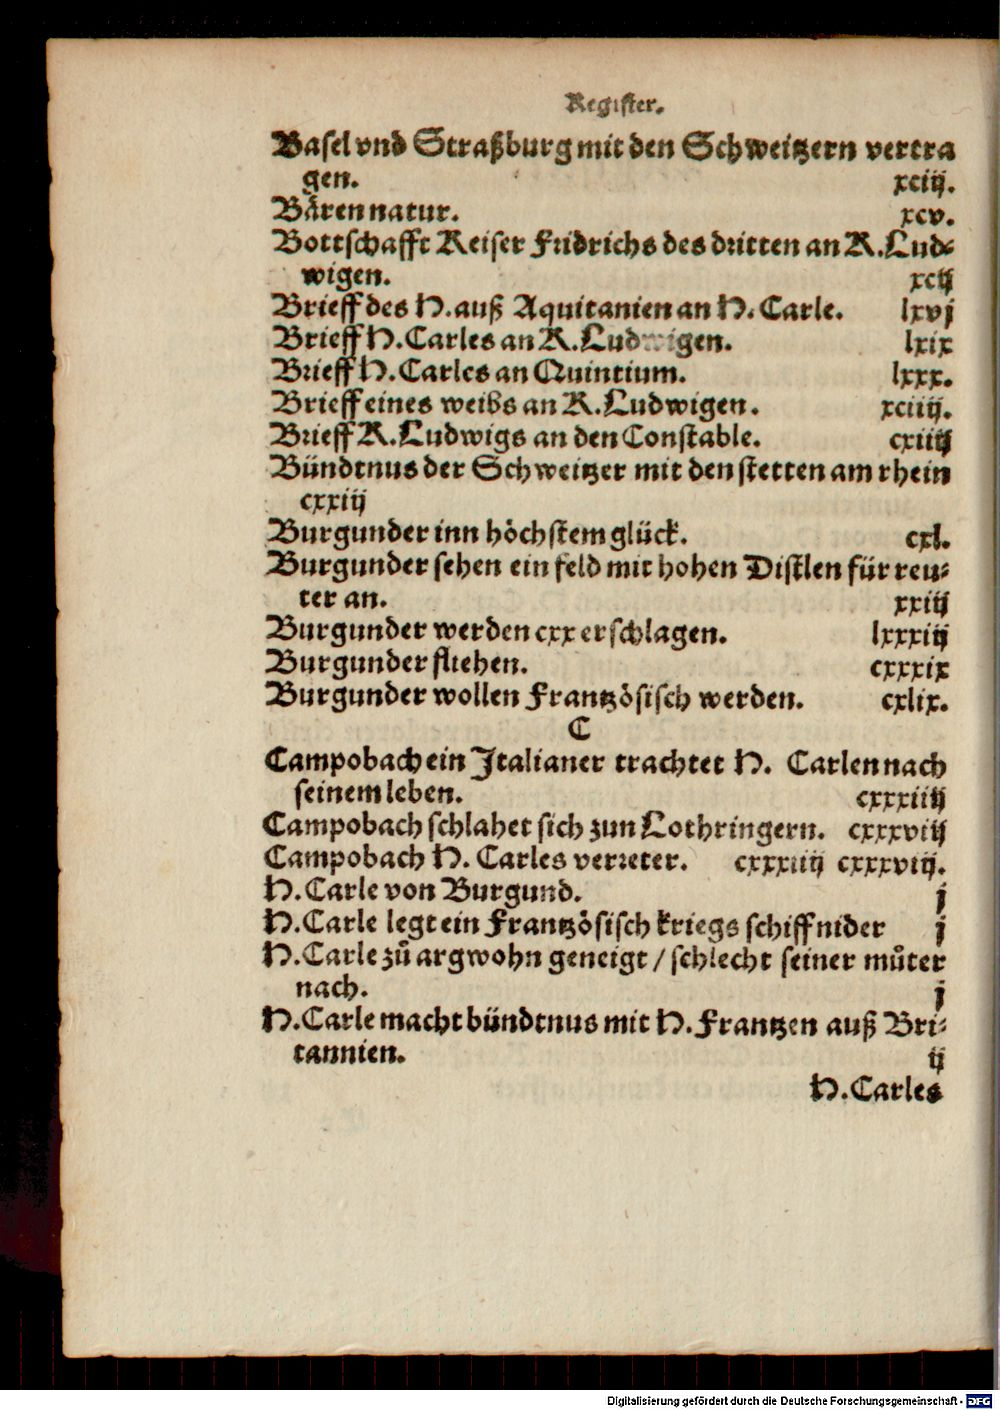 Register.
Basel vnd Straßburg mit den Schweitzern vertra
gen. xciij.
Bären natur. xcv.
Bottschafft Keiser Fridrichs des dritten an K.Lud-
wigen. xcij
Brieff des H.auß Aquitanien an H. Carle. lxvj
Brieff H.Carles an K.Ludwigen. lxix
Brieff H.Carles an Quintium. lxxx.
Brieff eines weibs an K.Ludwigen. xciiij.
Brieff K.Ludwigs an den Constable. cxiiij
Bündtnus der Schweitzer mit den stetten am rhein
cxxiij
Burgunder inn höchstem glück. cxl.
Burgunder sehen ein feld mit hohen Distlen für reu-
ter an. xxiij
Burgunder werden cxx erschlagen. lxxxiij
Burgunder fliehen. cxxxix
Burgunder wollen Frantzösisch werden. cxlix.
C
Campobach ein Italianer trachtet H. Carlen nach
seinem leben. cxxxiiij
Campobach schlahet sich zun Lothringern. cxxxviij
Campobach H. Carles verreter. cxxxiiij cxxxviij.
H.Carle von Burgund. j
H.Carle legt ein Frantzösisch kriegs schiff nider j
H.Carle zů argwohn geneigt / schlecht seiner můter
nach. j
H.Carle macht bündtnus mit H.Frantzen auß Bri-
tannien. ij
H.Carles
Digitalisierung gefördert durch die Deutsche Forschungsgemeinschaft - DFG